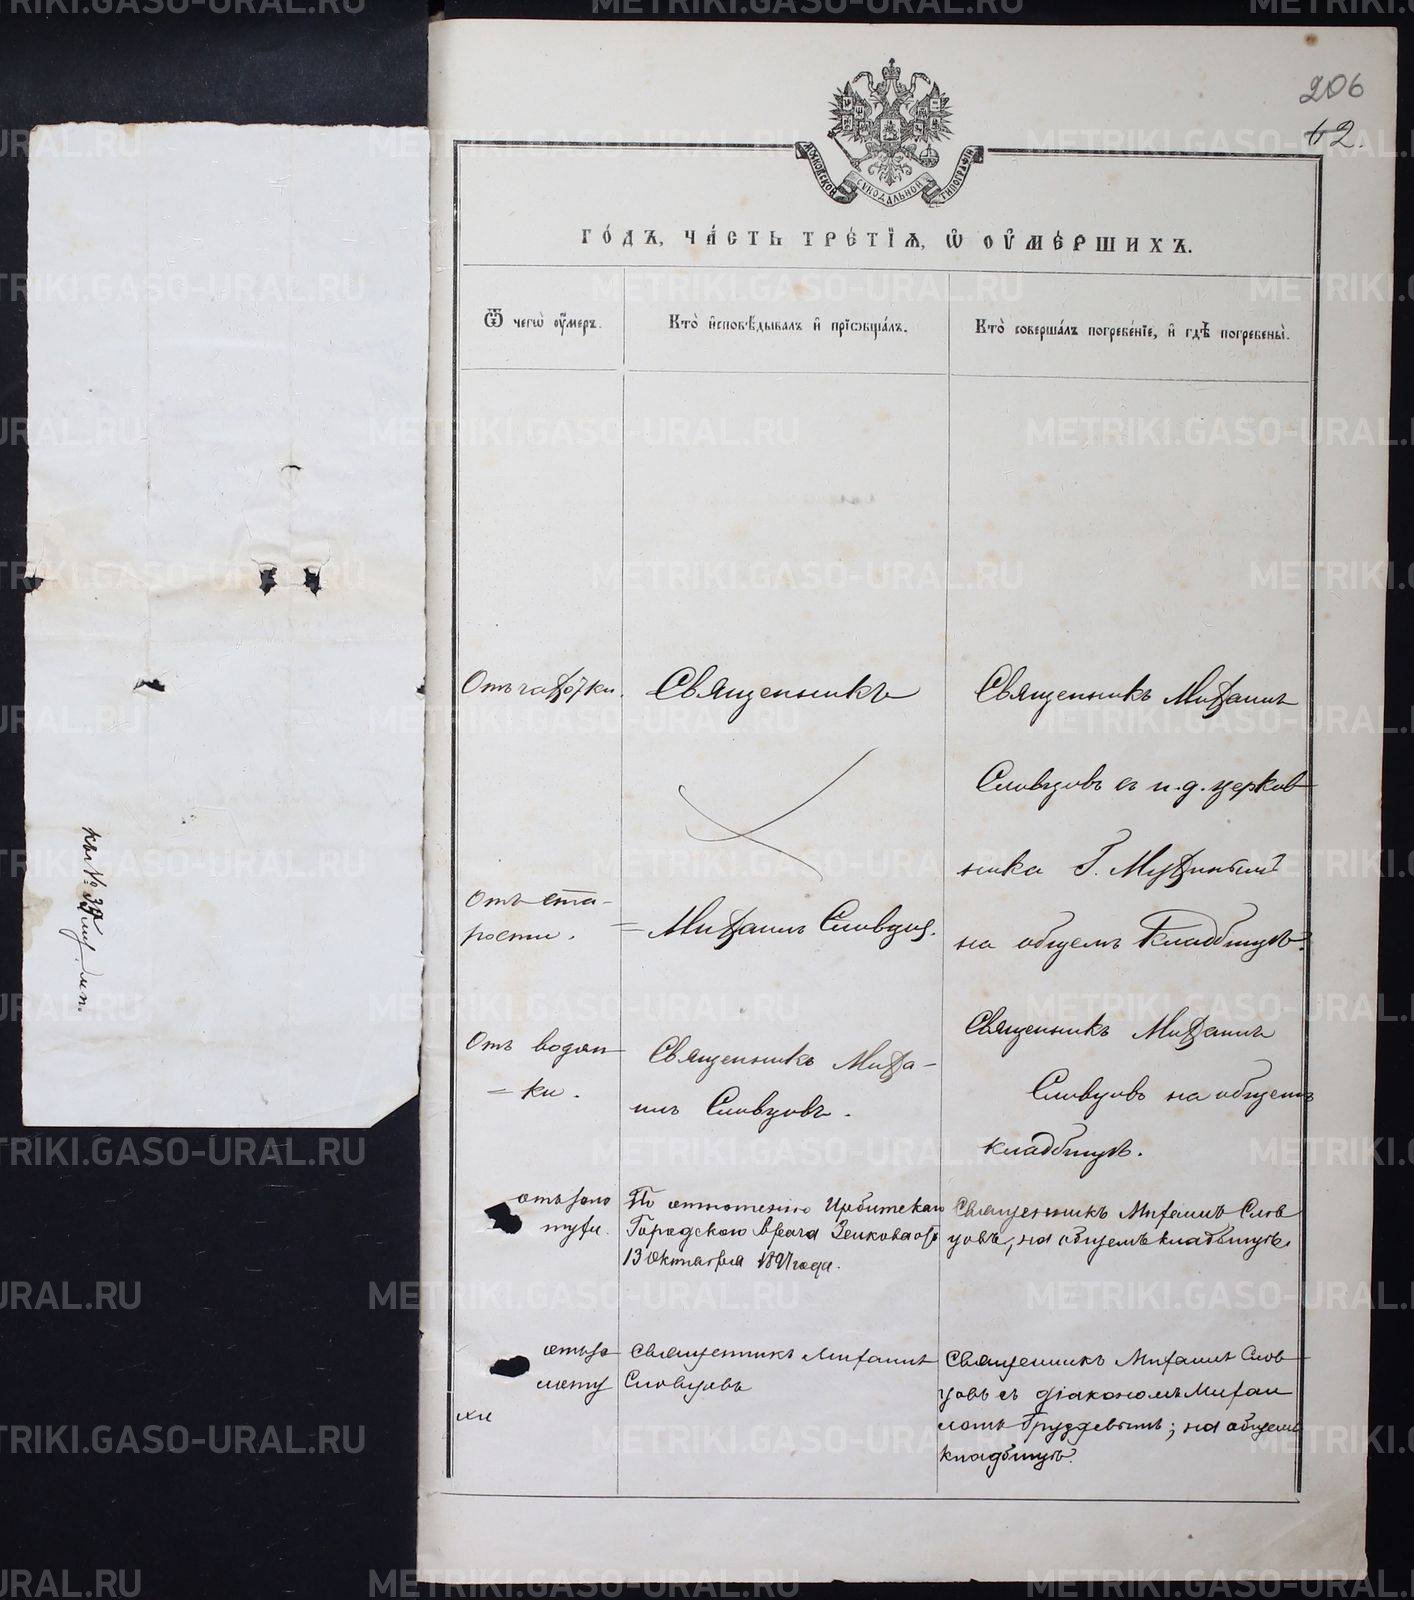 206
42.
МОСКОВСКОЙ СѴНОДАЛЬНОЙ ТИПОГРАФІИ
ГО́ДЪ, ЧА́СТЬ ТРЕ́ТІѦ, Ѡ҆ ОУ҆МЕ́РШИХЪ.
Ѿ чегѡ̀ оу҆́меръ.
Кто̀ и҆сповѣ́дывалъ и҆ прїѡбща́лъ.
Кто̀ соверша́лъ погребе́нїе, и҆ гдѣ̀ погребены̀.
Отъ чахотки.
Священникъ
Священникъ Михаилъ
Словцовъ съ и.д. церков
ника Г. Мухинымъ
на общемъ кладбищѣ.
Отъ ста-
рости.
= Михаилъ Словцов.
Отъ водян
= ки.
Священникъ Миха-
илъ Словцовъ.
Священникъ Михаилъ
Словцовъ на общемъ
кладбищѣ.
отъ золо
тухи.
По отношенію Ирбитскаго
Городскаго Врача отъ
13 Октября года.
Священникъ Михаилъ Слов
цовъ, на общемъ кладбищѣ.
отъ зо
лоту
хи
Священникъ Михаилъ
Словцовъ
Священникъ Михаилъ Слов
цовъ съ діакономъ Михаи
ломъ Груздевымъ; на общемъ
кладбищѣ.
къ №
METRIKI.GASO-URAL.RU